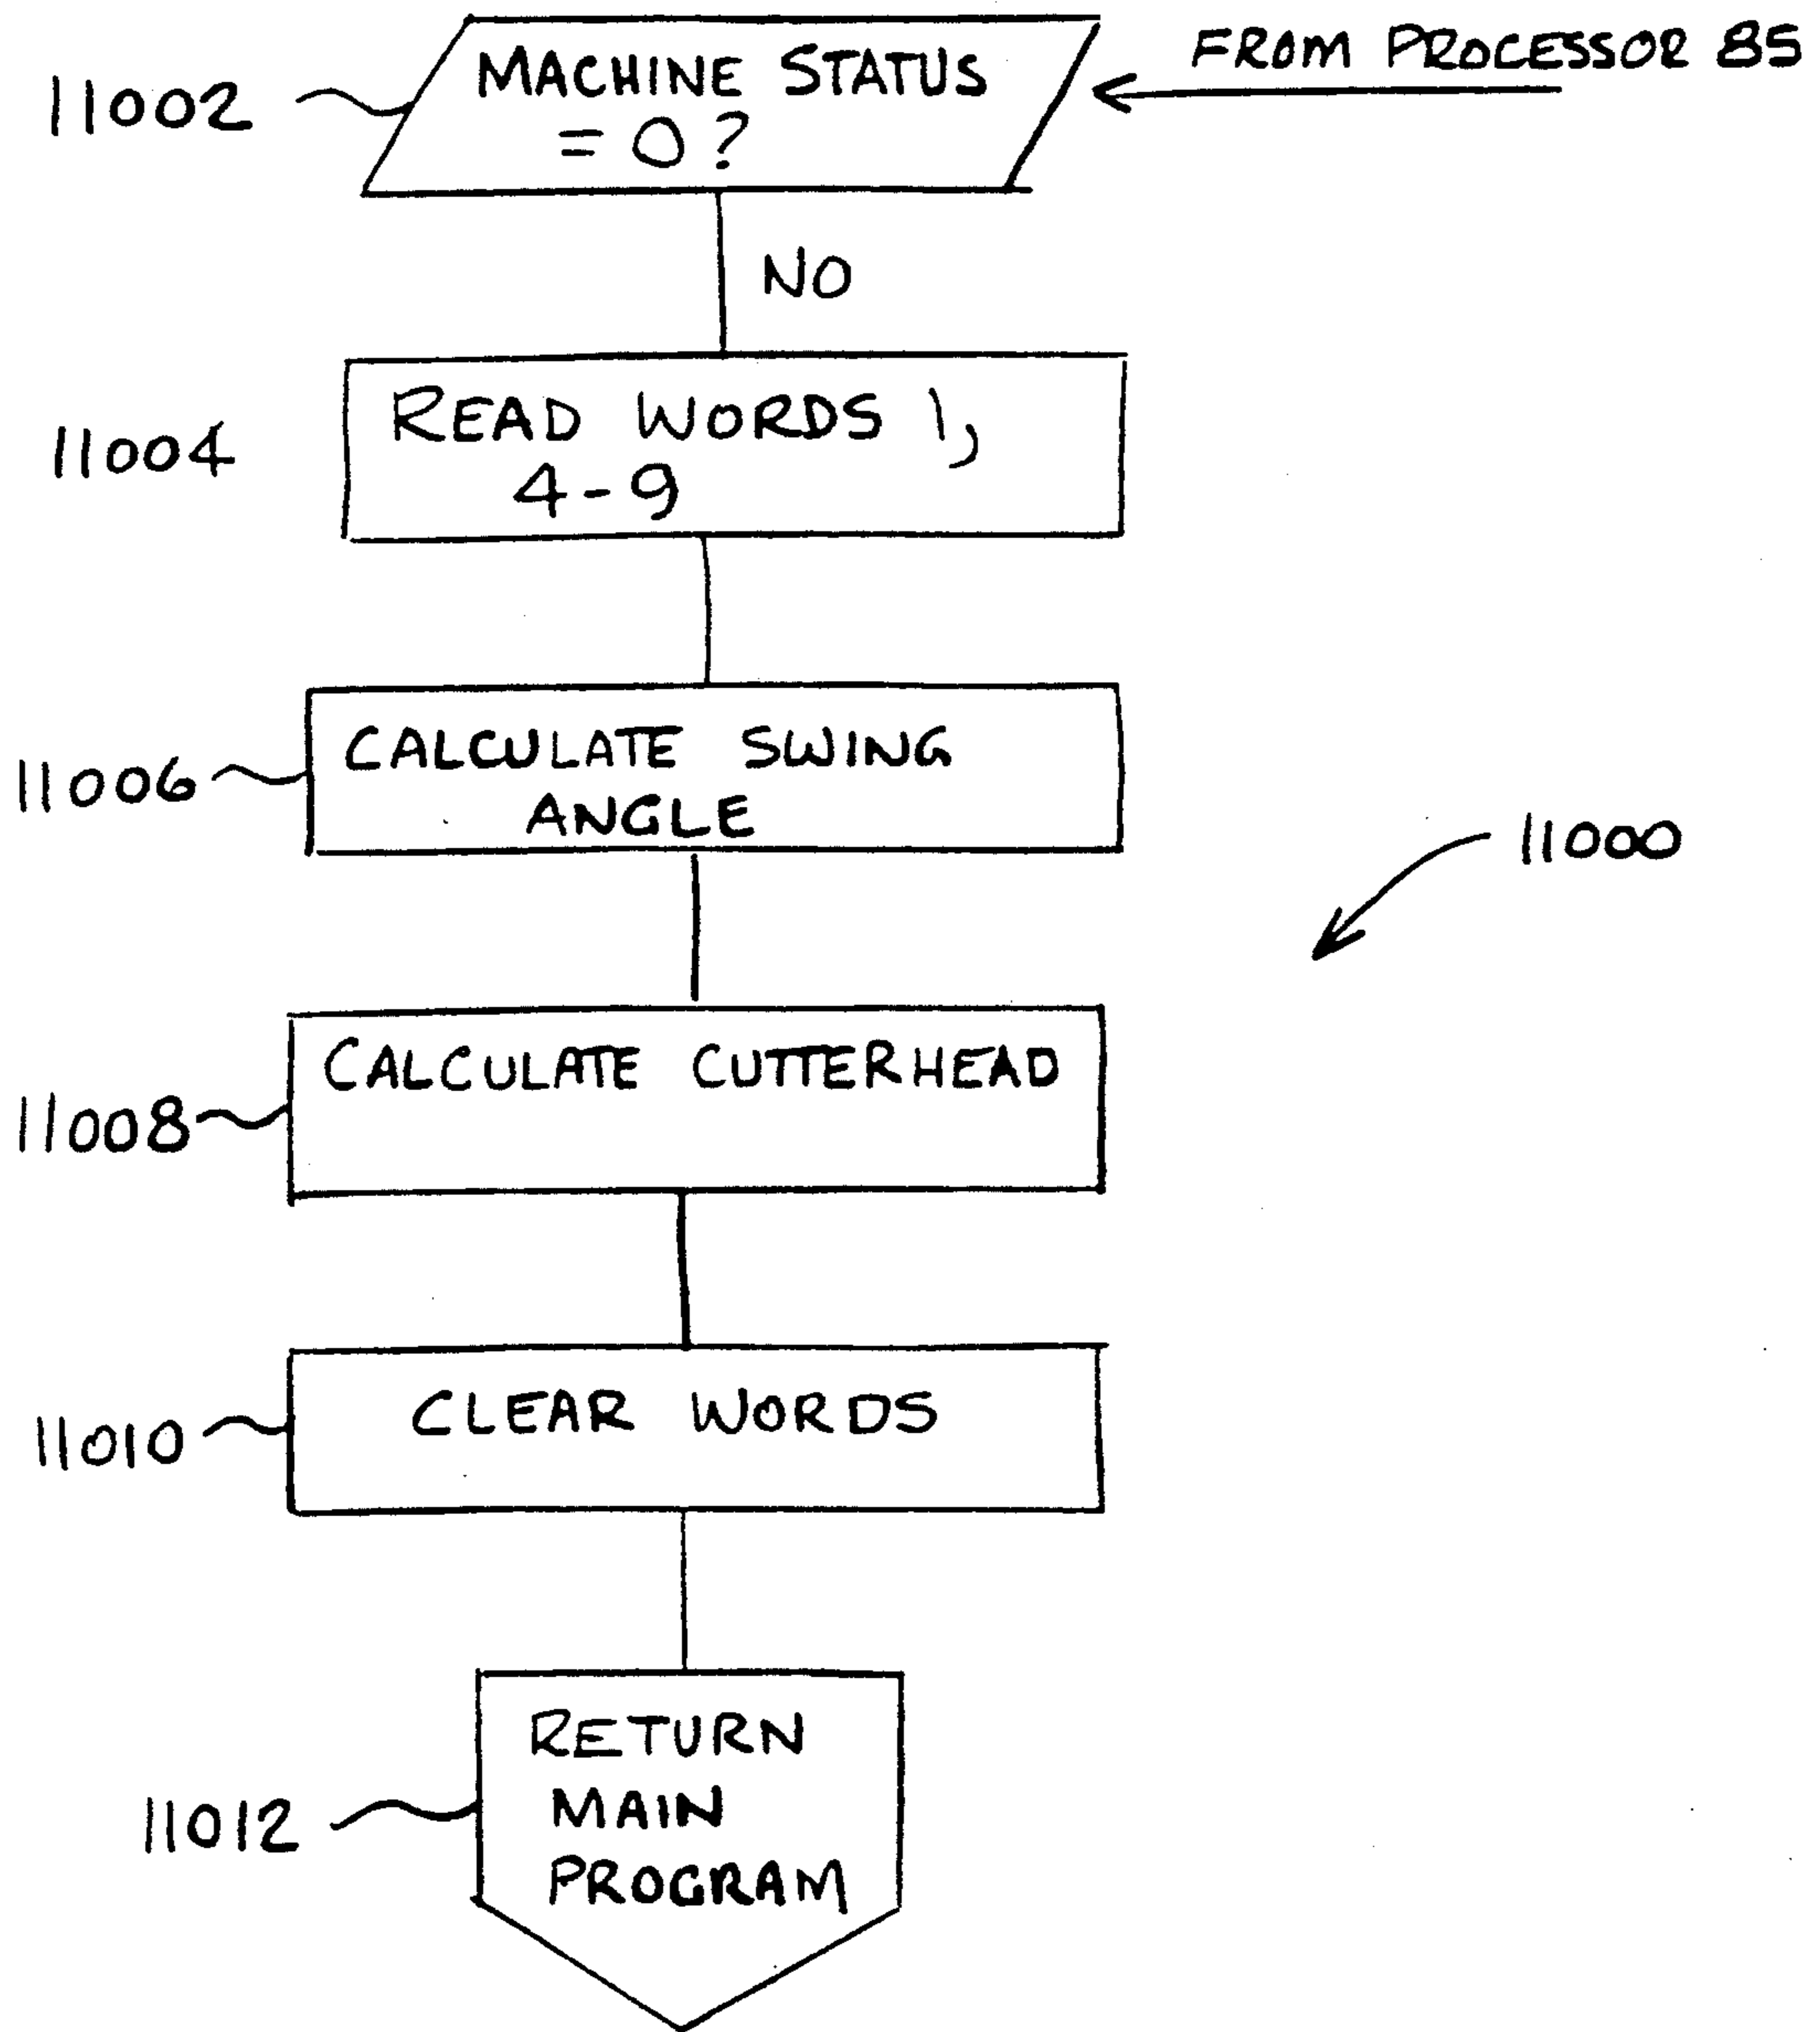 11002
MACHINE STATUS
= 0 ?
FROM PROCESSOR 85
NO
11004
READ WORDS 1,
4-9
11006
CALCULATE SWING
ANGLE
11000
11008
CALCULATE CUTTERHEAD
11010
CLEAR WORDS
11012
RETURN
MAIN
PROGRAM